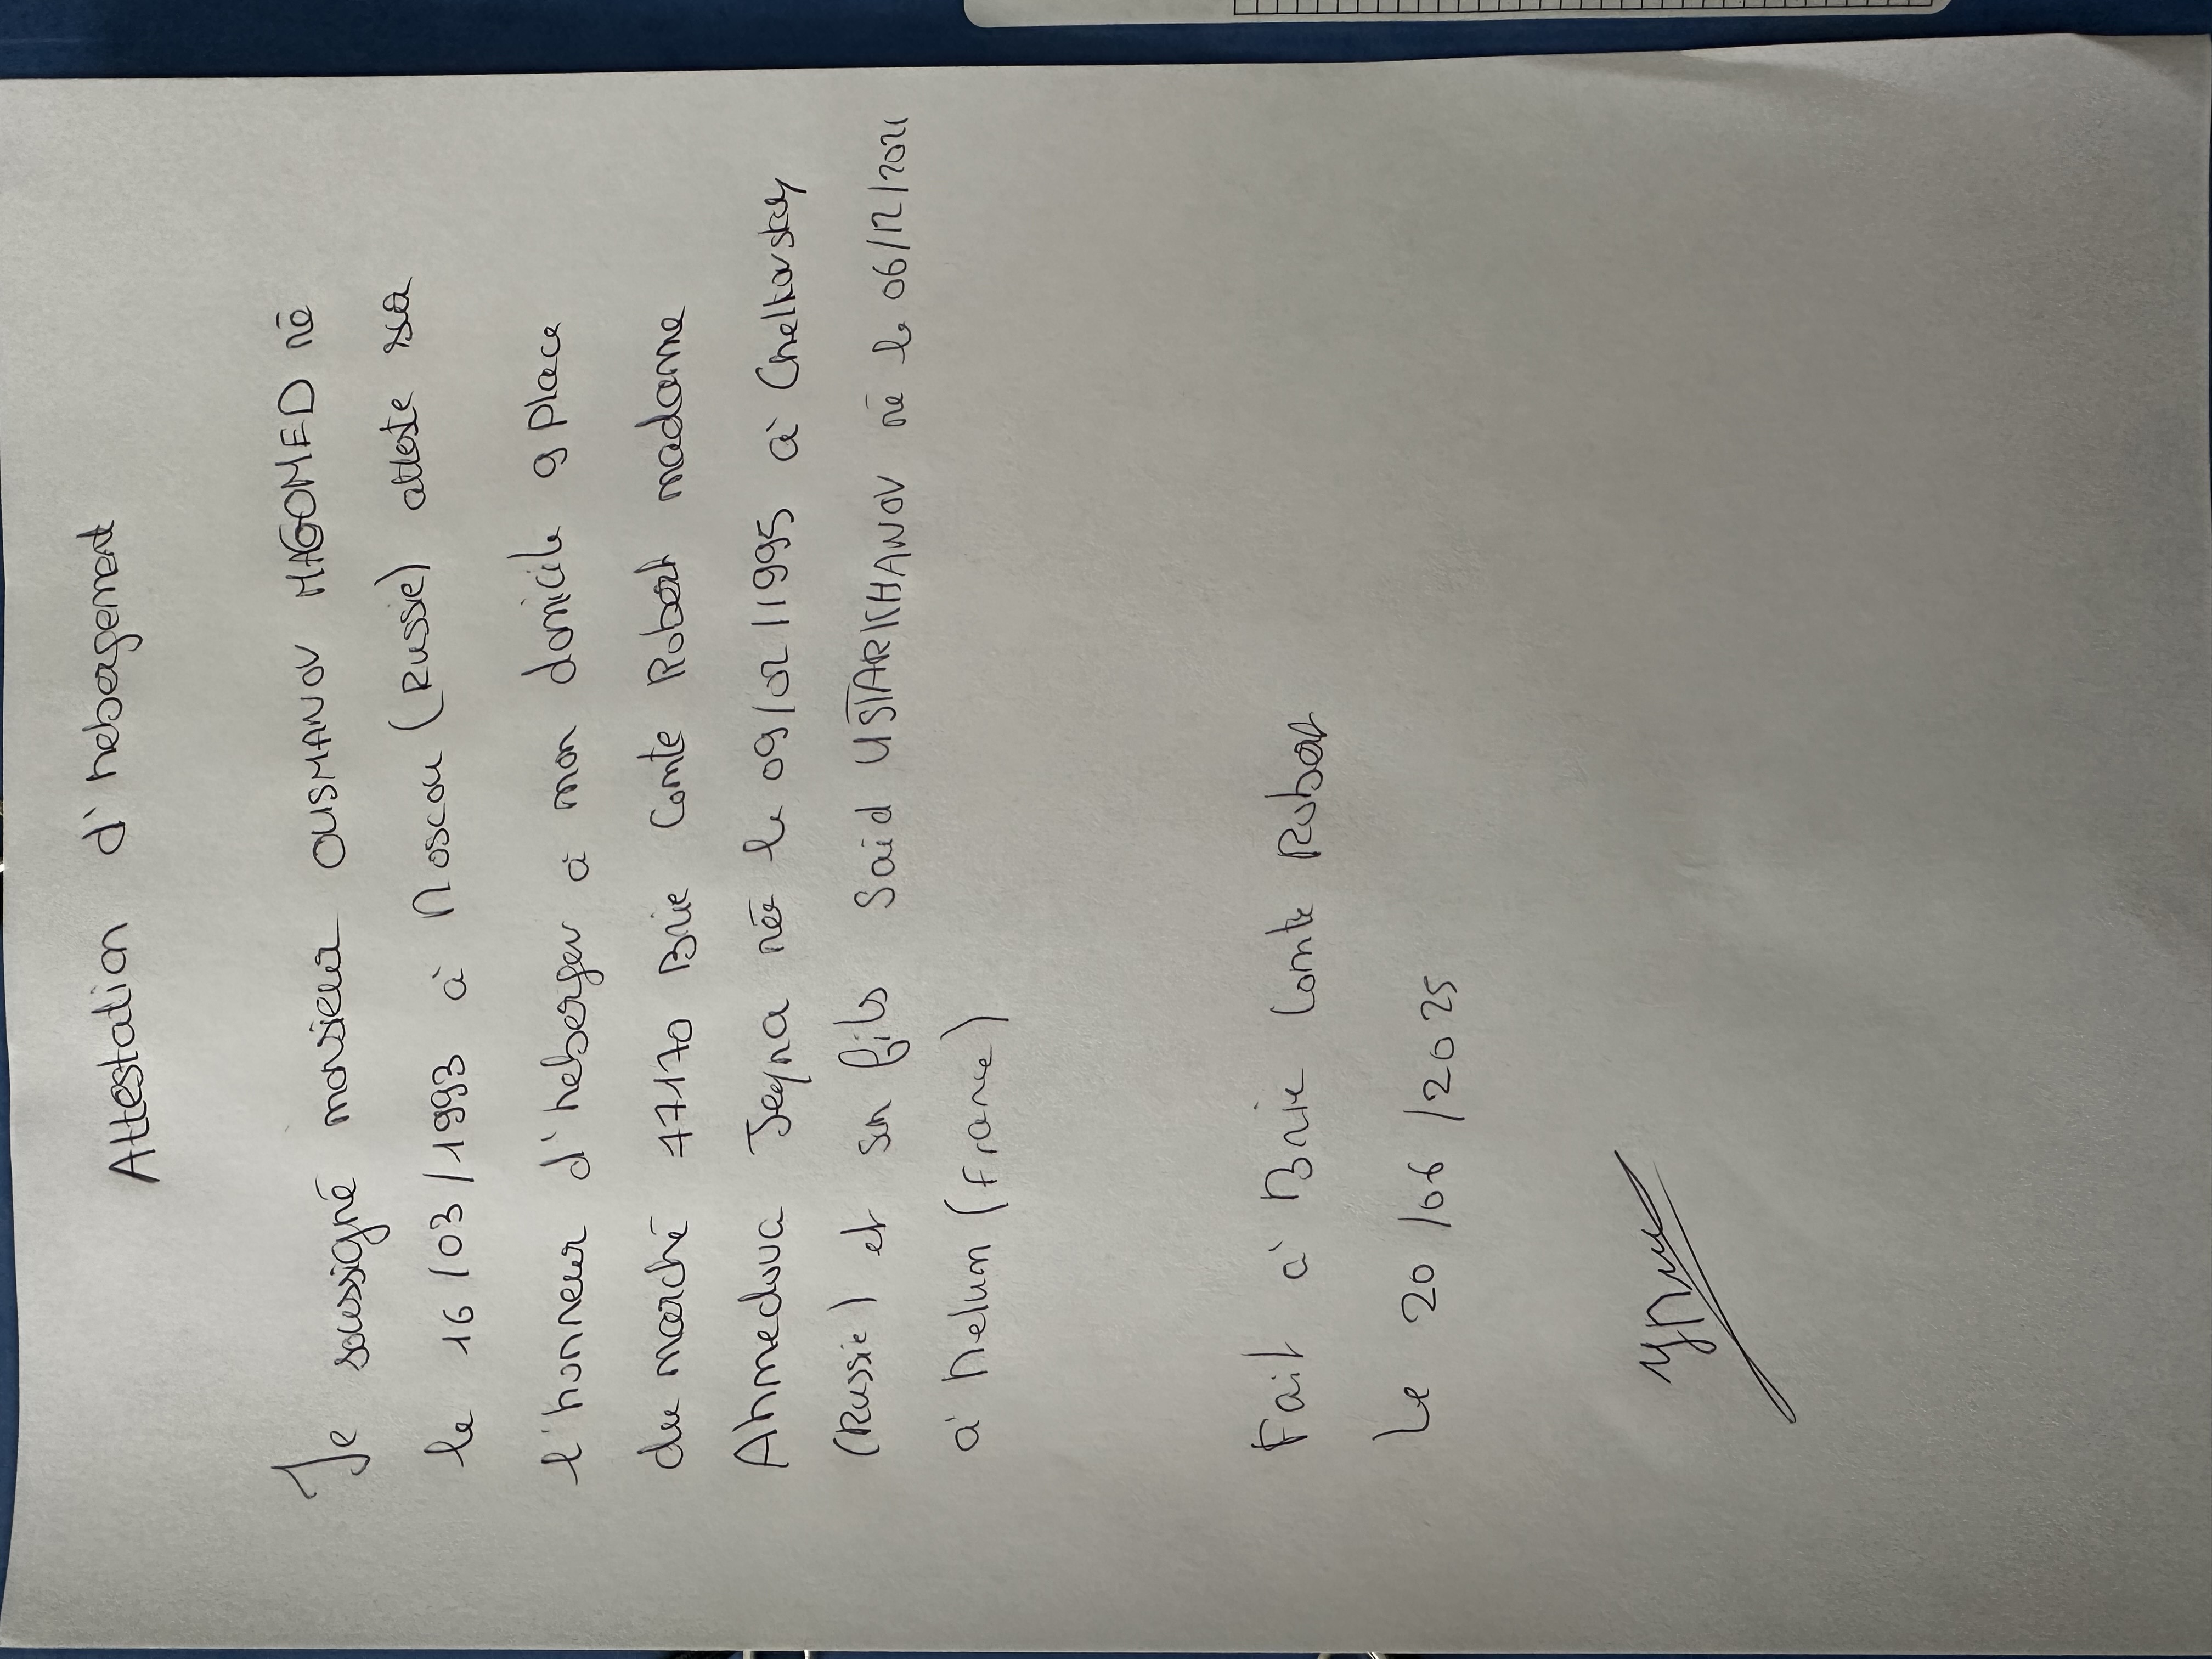 Attestation d'hebergement
Je soussigné monsieur OUSMANOV MAGOMED né
le 16/03/1993 à Moscou (Russie) atteste sur
l'honneur d'heberger à mon domicile 9 place
du marché 77170 Brie Comte Robert madame
Ahmedova né le 09/02/1995 à Chelkovskoy
(Russie) et son fils Said USTARKHANOV né le 06/12/2021
à Melun (France)
Fait à Brie Comte Robert
Le 20/06/2025